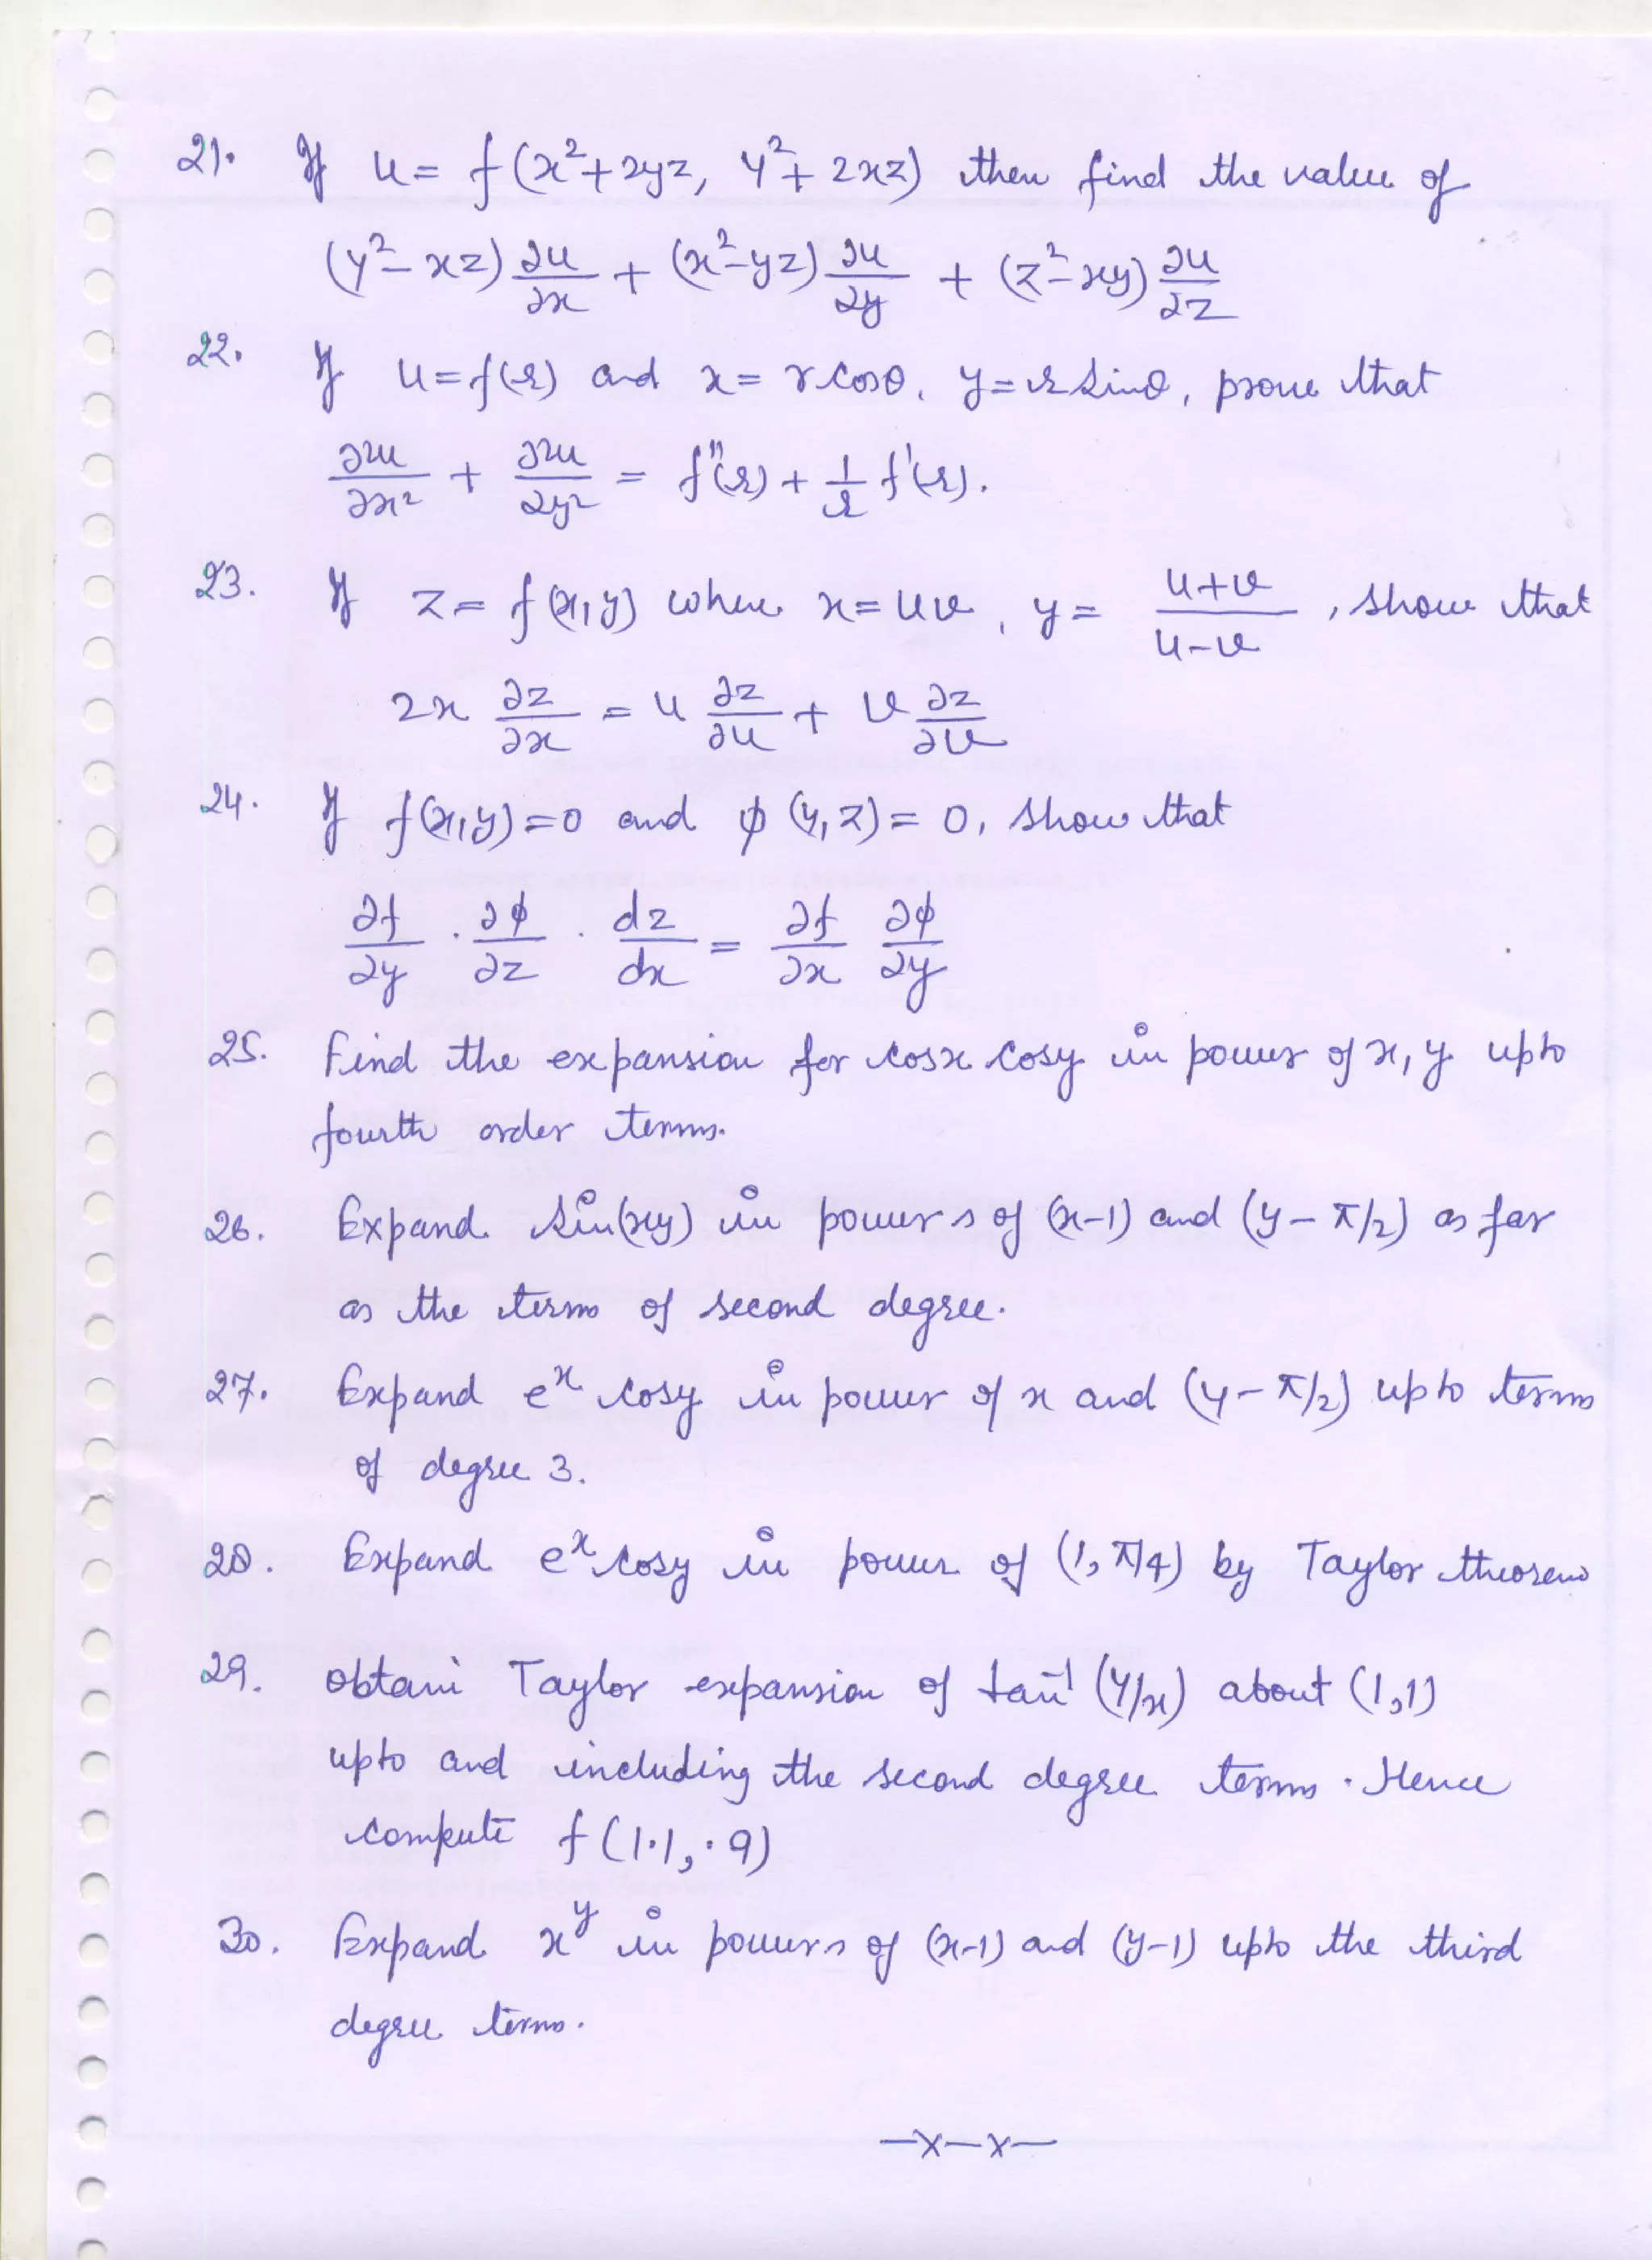 21. If u = f(x²+2yz, y²+2xz) then find the value of
(y²-xz) ∂u/∂x + (x²-yz) ∂u/∂y + (z²-xy) ∂u/∂z
22. If u=f(r) and x= r cosθ, y=r sinθ, prove that
∂²u/∂x² + ∂²u/∂y² = f''(r) + 1/r f'(r).
23. If z= f(x,y) where x=uv, y= (u+v)/(u-v), show that
2x ∂z/∂x = u ∂z/∂u + v ∂z/∂v
24. If f(x,y)=0 and φ(y,z)= 0, show that
∂f/∂y . ∂φ/∂z . dz/dx = ∂f/∂x ∂φ/∂y
25. Find the expansion for cosx cosy in power of x, y upto
fourth order terms.
26. Expand sin(xy) in powers of (x-1) and (y-π/2) as far
as the terms of second degree.
27. Expand eˣ cosy in power of x and (y-π/2) upto terms
of degree 3.
28. Expand eˣ cosy in power of (1, π/4) by Taylor theorem
29. Obtain Taylor expansion of tan⁻¹(y/x) about (1,1)
upto and including the second degree terms. Hence
compute f(1.1, .9)
30. Expand xʸ in powers of (x-1) and (y-1) upto the third
degree terms.
—x—x—